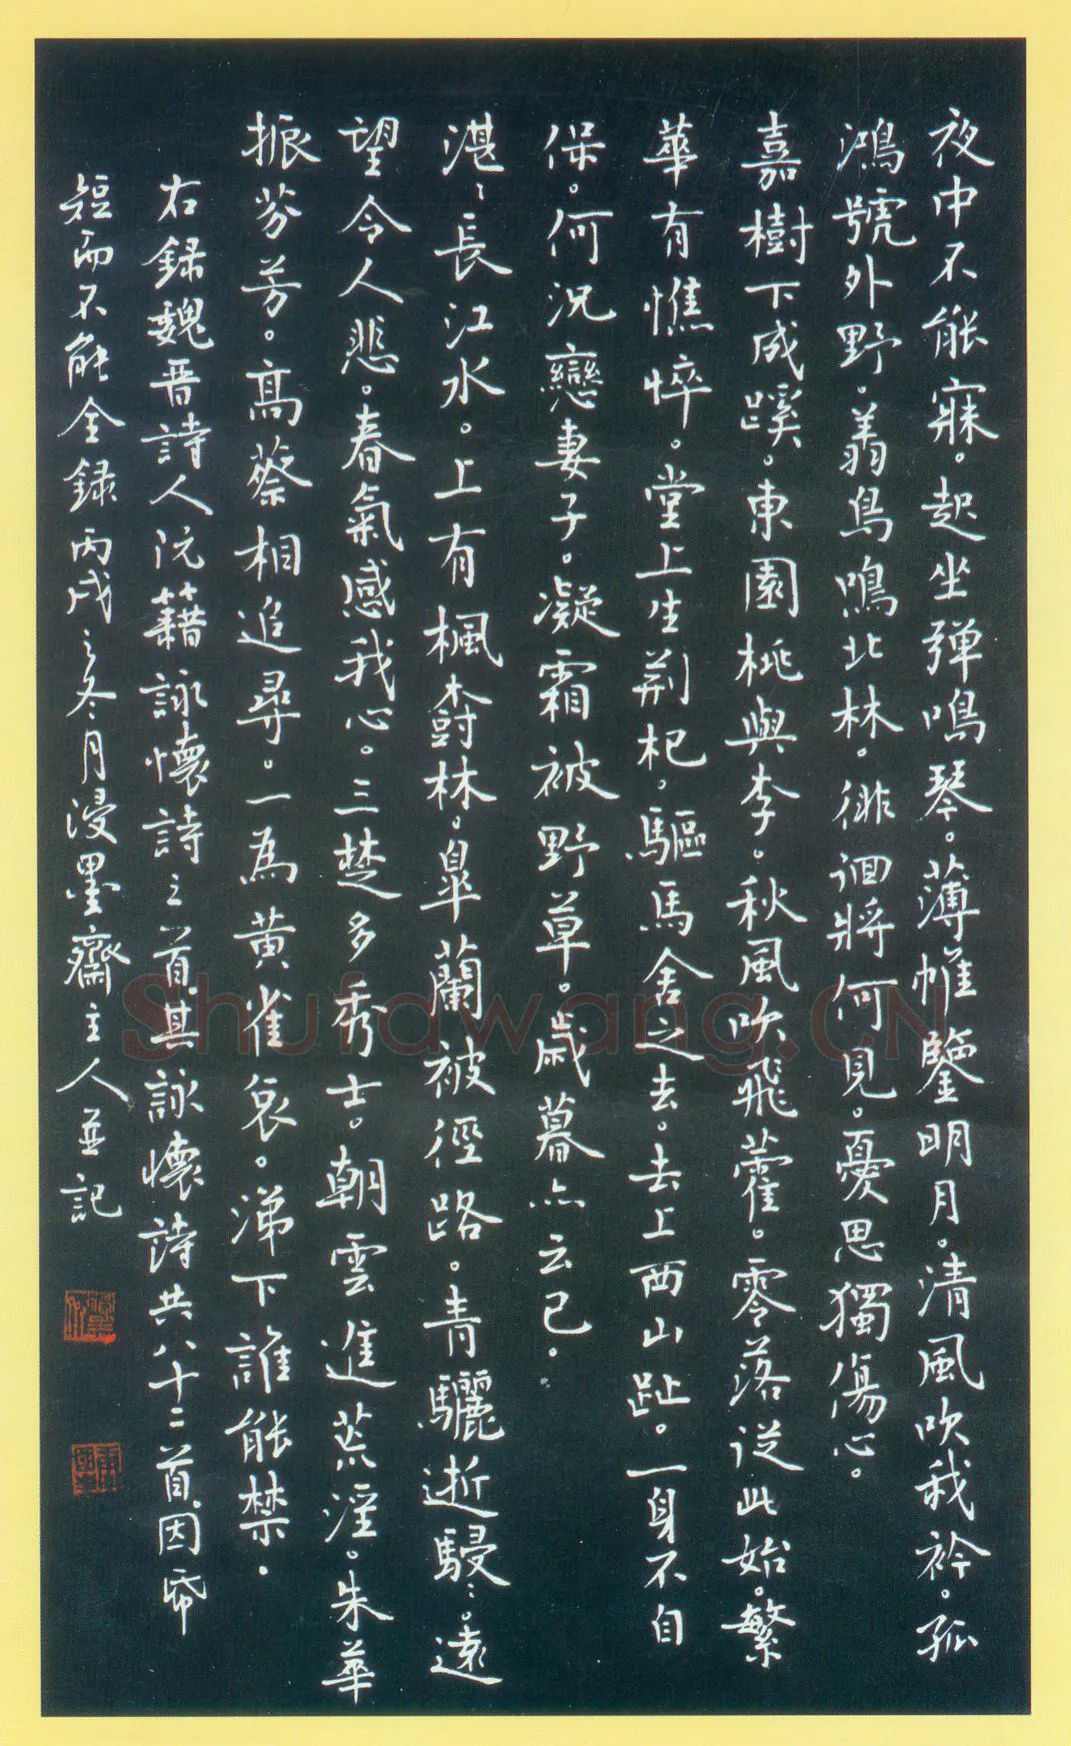 夜中不能寐。起坐弹鳴琴。薄帷鑒明月。清風吹我衿。孤
鴻號外野。翔鳥鳴北林。徘徊將何見。憂思獨傷心。
嘉樹下成蹊。東園桃與李。秋風吹飛藿。零落從此始。繁
華有憔悴。堂上生荊杞。驅馬舍之去。去上西山趾。一身不自
保。何況戀妻子。凝霜被野草。歲暮亦云已。
湛〻長江水。上有楓樹林。皋蘭被徑路。青驪逝駸〻。遠
望令人悲。春氣感我心。三楚多秀士。朝雲進荒淫。朱華
振芬芳。高蔡相追尋。一為黃雀哀。涕下誰能禁。
右録魏晋詩人阮籍詠懷詩之首。其詠懷詩共八十二首。因帋
短而不能全録丙戌之冬月浸墨齋主人並記
Shufawang.CN